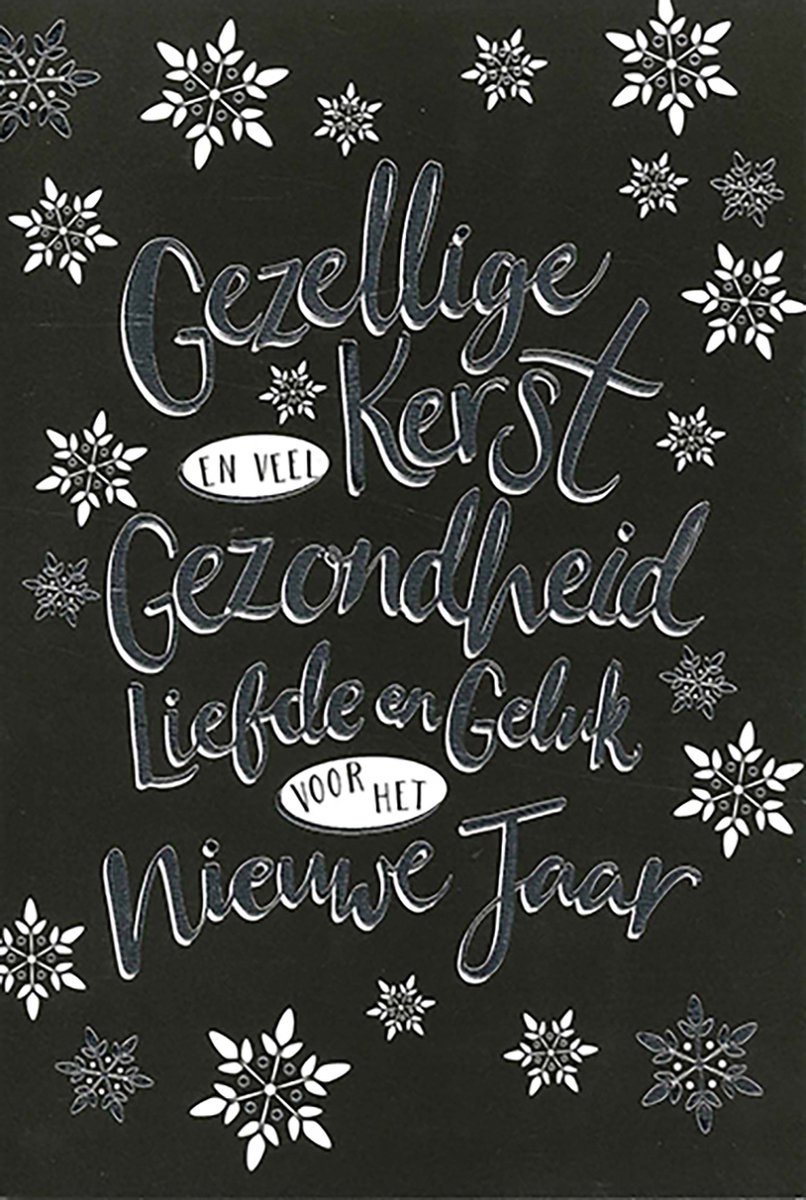 Gezellige
Kerst
EN VEEL
Gezondheid
Liefde en Geluk
VOOR HET
Nieuwe Jaar